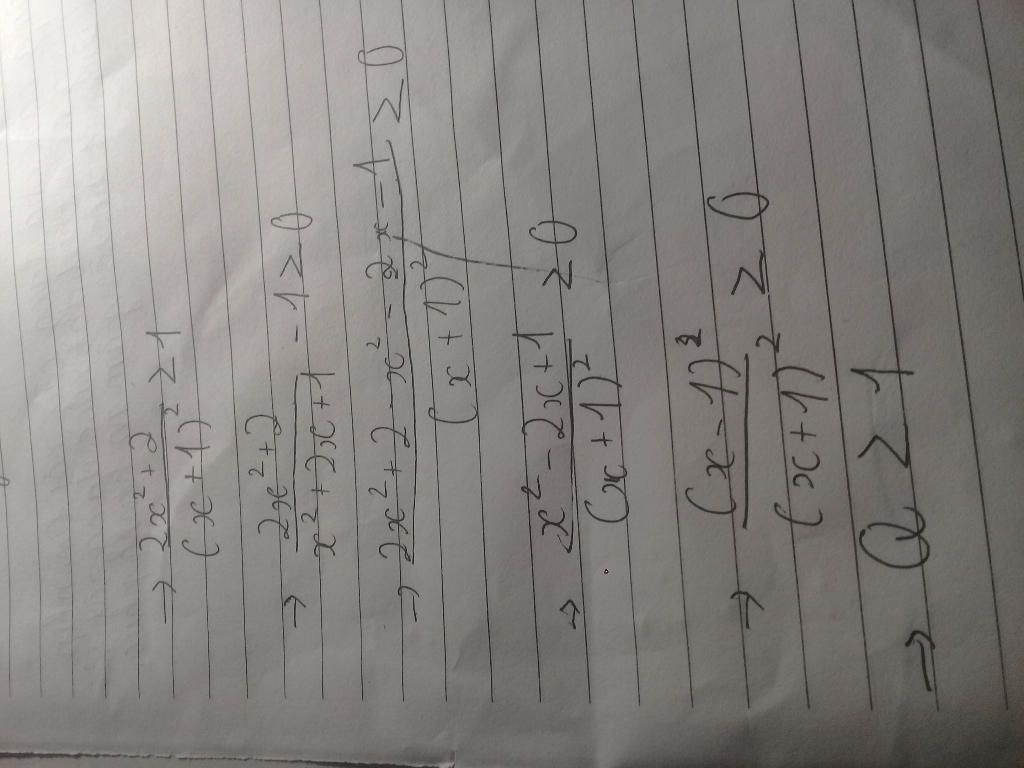 → (2x²+2)/(x+1)² ≥ 1
→ (2x²+2)/(x²+2x+1) - 1 ≥ 0
→ (2x²+2-x²-2x-1)/(x+1)² ≥ 0
→ (x²-2x+1)/(x+1)² ≥ 0
→ (x-1)²/(x+1)² ≥ 0
→ Q ≥ 1